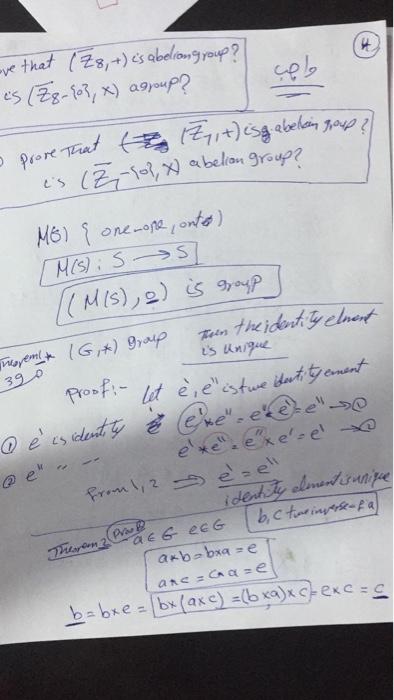 ve that (Z̅8,+) is abelian group?
is (Z̅8-{0}, ×) a group?
واجب
4
prove that (Z̅7,+) is abelian group?
is (Z̅7-{0}, ×) abelian group?
M(S) { one-one, onto)
M(S): S → S
(M(S), o) is group
Theorem (G,*) group Then the identity elment is unique
Proof:- let e', e" is two identity ement
① e' is identity e'*e" = e"*e' = e" → ①
② e" " " e'*e" = e"*e' = e' → ②
From 1, 2 ⇒ e' = e"
identity elment is unique
Theorem 2 Proof a∈G e∈G b, c two inverse of a
a*b = b*a = e
a*c = c*a = e
b = b*e = b*(a*c) = (b*a)*c = e*c = c